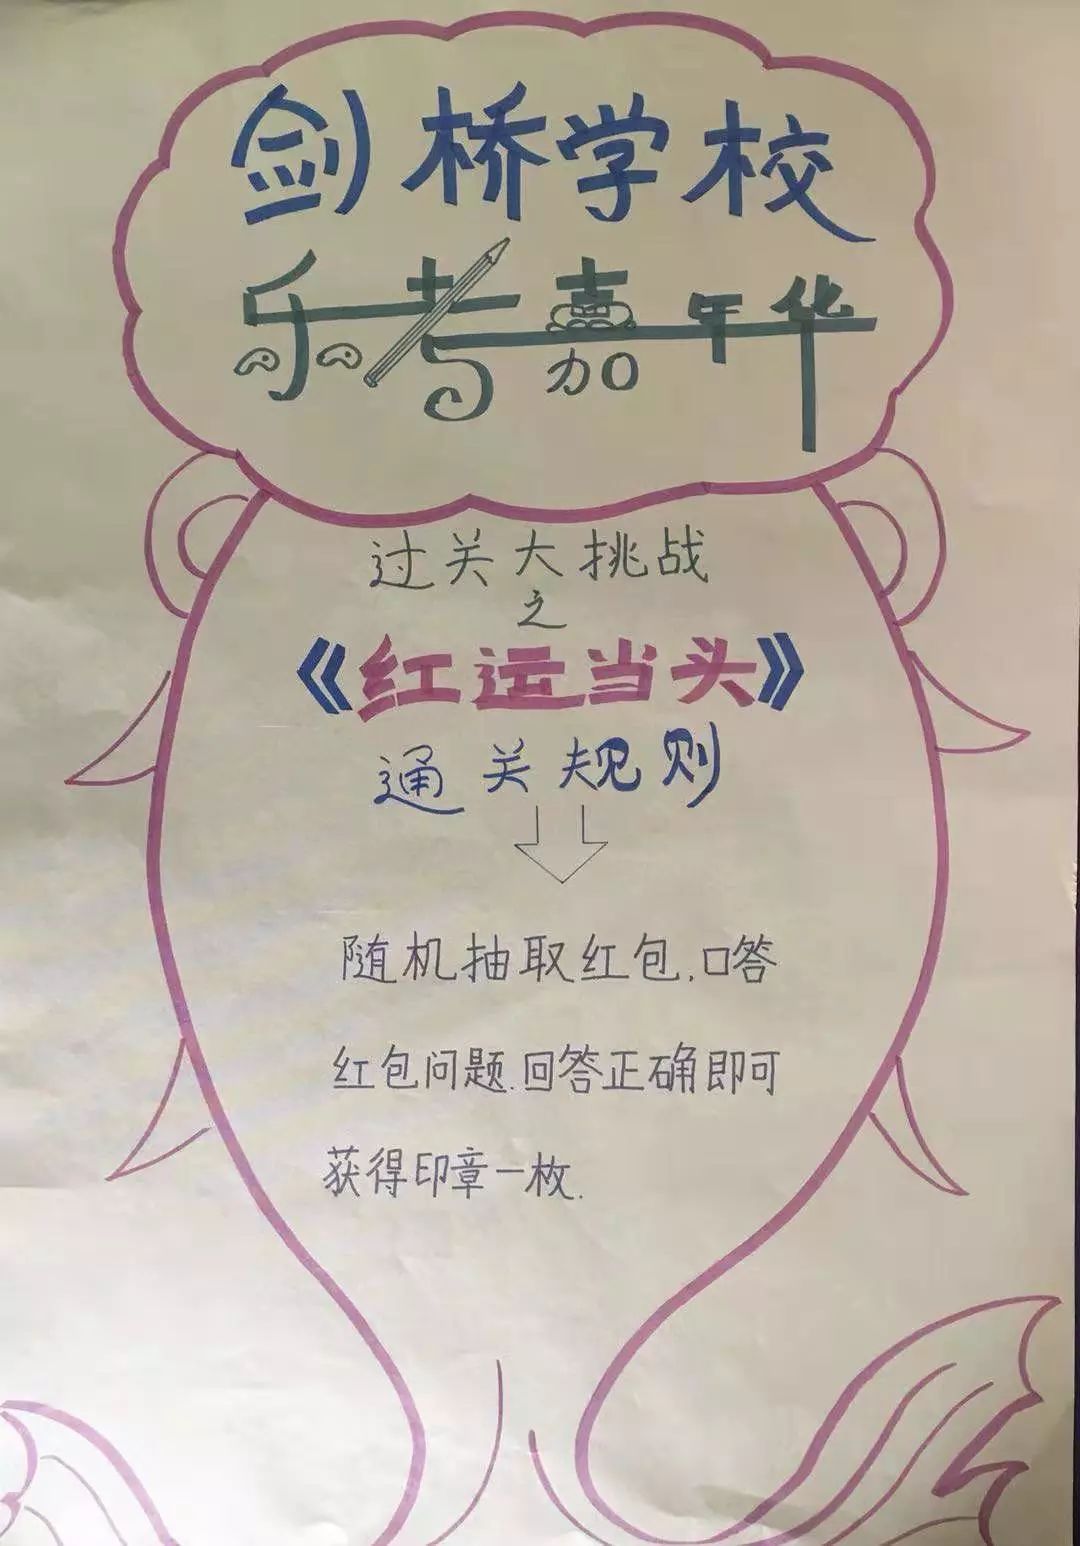 剑桥学校
乐考嘉年华
过关大挑战
之
《红运当头》
通关规则
随机抽取红包,口答
红包问题.回答正确即可
获得印章一枚.